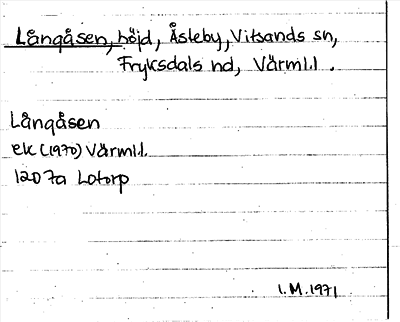 Långåsen, höjd, Åsteby, Vitsands sn,
Fryksdals hd, Värml.l.
Långåsen
ek (1970) Värml.l.
12D 7a Lotorp
I.M. 1971